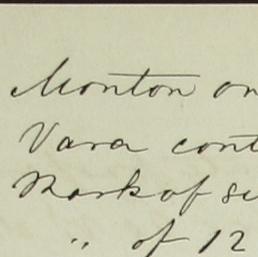 Monton on
Vara cont
Mark of si
" of 12